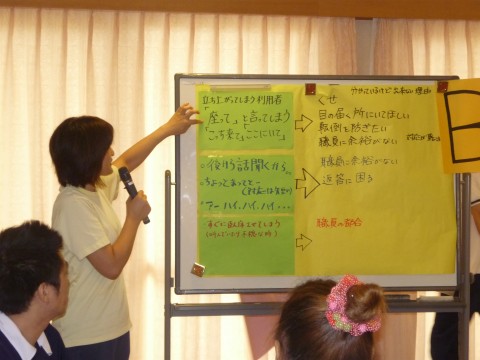 立ち上がってしまう利用者
「座って」と言ってしまう
「こっち来て」「ここにいて」
○後から話聞くから。
○ちょっとまってー
○ハーハイ、ハイ、ハイ・・・
すぐに
させてしまう
分かっているけど出来ない理由
くせ
目の届く所にいてほしい
転倒を防ぎたい
職員に余裕がない
職員に余裕がない
返答に困る
職員の都合